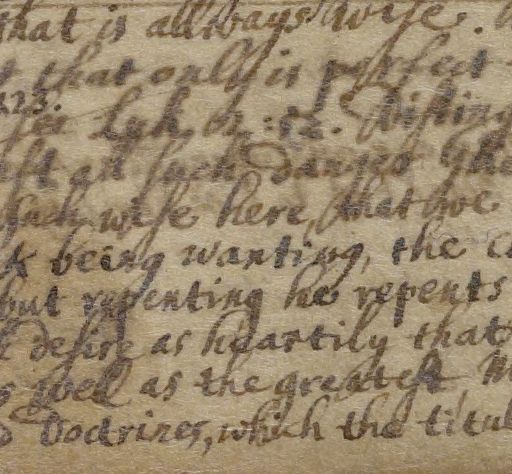 that is allways wise.
that only is perfect
323.
Luk. 2: 52.
such danger
such wise here, that we
being wanting, the
but repenting he repents
desire as heartily that
well as the greatest
Doctrines, which the titul